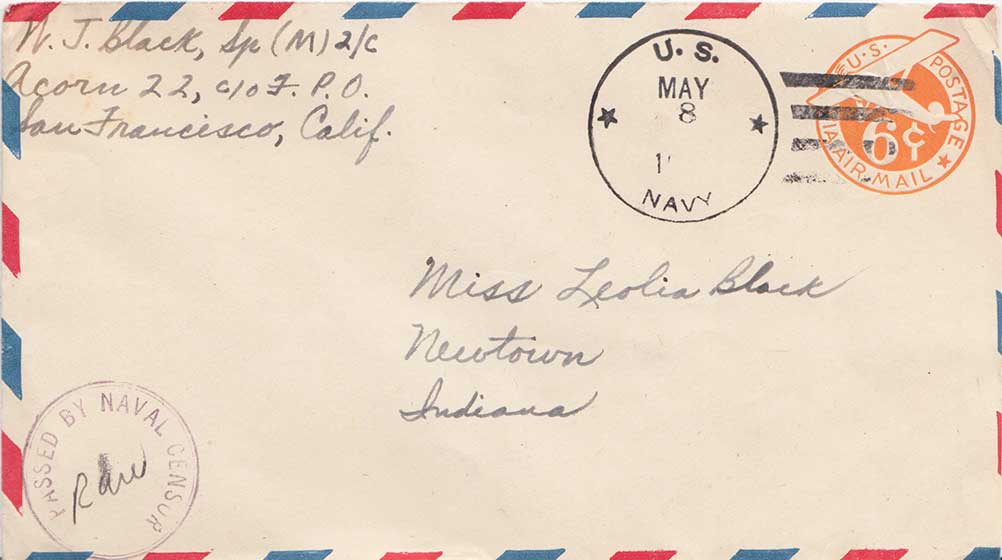 W. J. Black, Sp (M) 2/c
Acorn 22, c/o F. P. O.
San Francisco, Calif.
U. S.
MAY
8
NAVY
U.S. POSTAGE
6¢
VIA AIR MAIL
Miss Leolia Black
Newtown
Indiana
PASSED BY NAVAL CENSOR